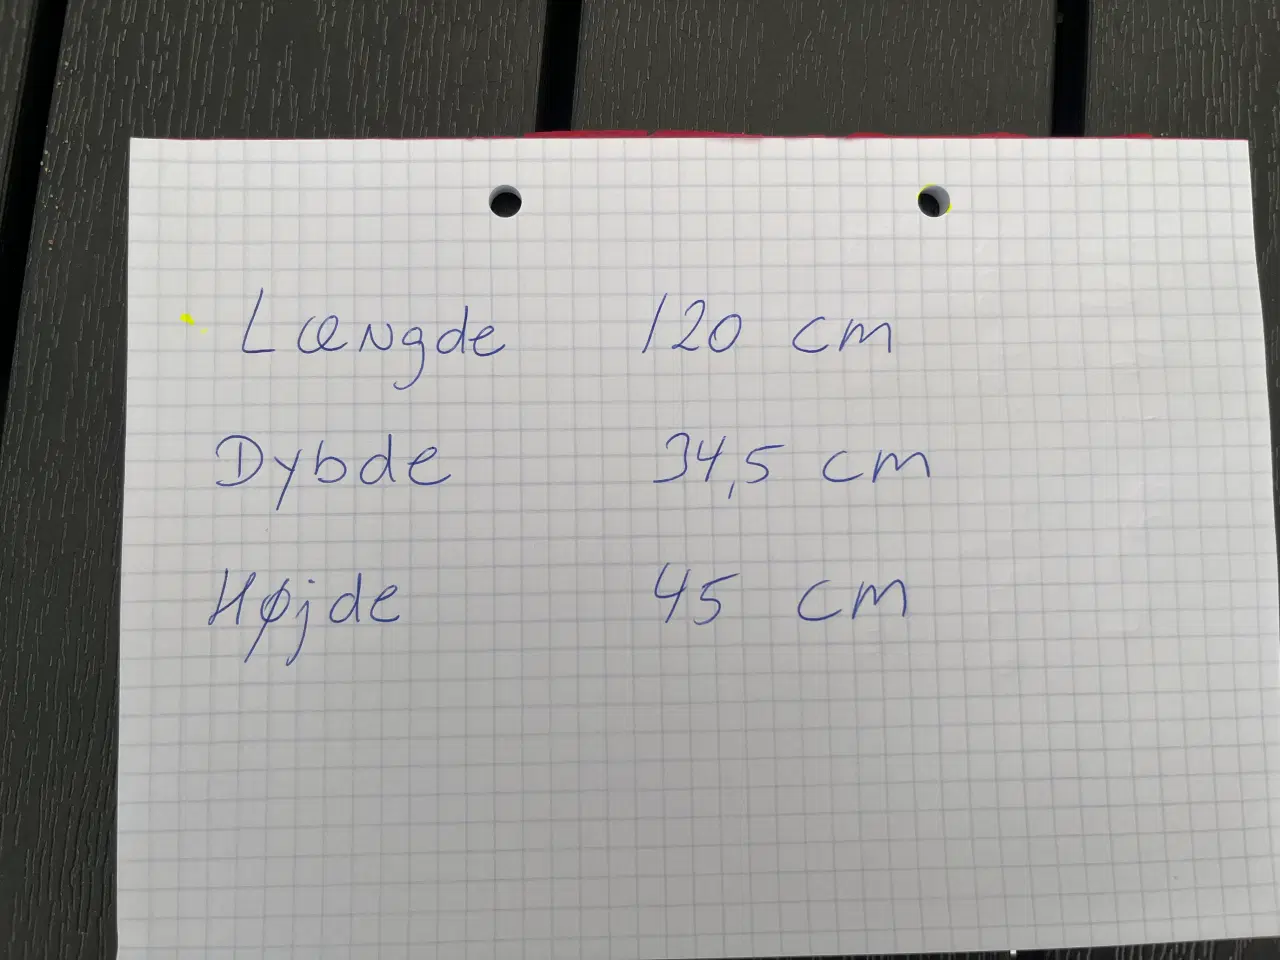 Længde 120 cm
Dybde 34,5 cm
Højde 45 cm